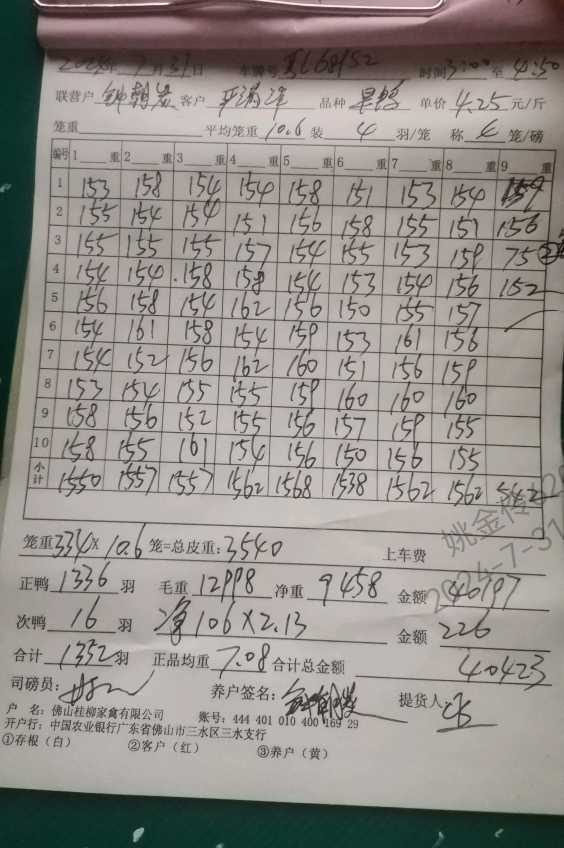 2024年 7月31日 车牌号 68152 时间3:00至4:50
联营户 客户 品种 单价 4.25 元/斤
笼重 平均笼重 10.6 装 4 羽/笼 称 4 笼/磅
编号 1 重 2 重 3 重 4 重 5 重 6 重 7 重 8 重 9 重
1 153 158 154 154 158 151 153 154 159
2 155 154 154 151 156 158 155 151 156
3 155 155 155 157 154 155 153 159 75
4 154 154 158 158 154 153 154 156 152
5 156 158 154 162 156 150 155 157
6 154 161 158 154 159 153 161 156
7 154 152 156 162 160 151 156 159
8 153 154 155 155 159 160 160 160
9 158 156 152 155 156 157 159 155
10 158 155 161 154 156 150 156 155
小计 1550 1557 1557 1562 1568 1538 1562 1562 542
笼重 334×10.6 笼=总皮重: 3540 上车费
正鸭 1336 羽 毛重 12998 净重 9458 金额 40197
次鸭 16 羽 净106×2.13 金额 226
合计 1352 羽 正品均重 7.08 合计总金额 40423
司磅员: 养户签名: 提货人:
户 名: 佛山桂柳家禽有限公司 账号: 444 401 010 400 169 29
开户行: 中国农业银行广东省佛山市三水区三水支行
①存根（白） ②客户（红） ③养户（黄）
2024-7-31